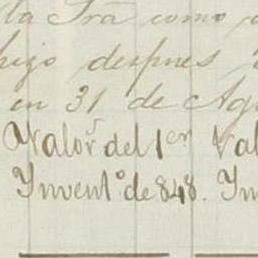 la Sra como
hizo despues
en 31 de Ag
Valor del 1er Val
Invent.o de 848. In